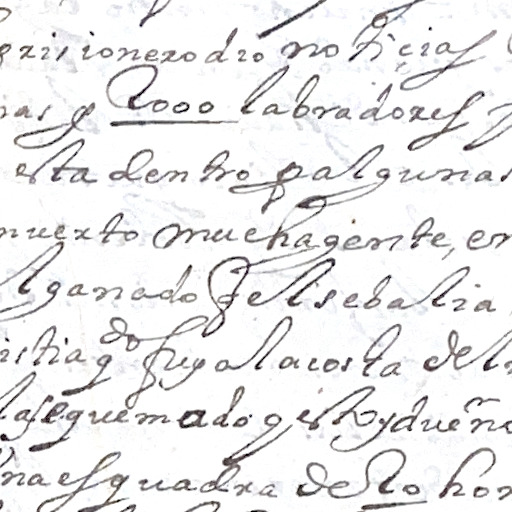 prisionero dio notiçias
mas q̃ 2000 labradores
esta dentro p algunas
muerto mucha gente, en
l ganado Felis ebalia
istia q do fuy a la costa del
las e quemado q̃ estoy dueño
una esquadra de 20 hon